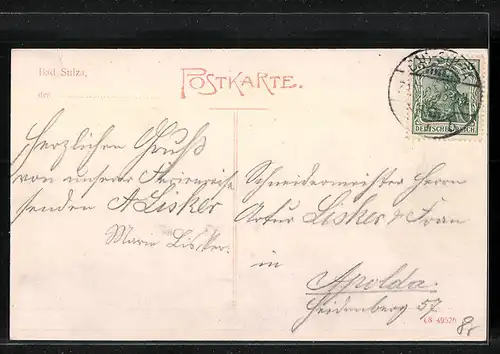 Bad Sulza,
den
POSTKARTE.
BAD SULZA
DEUTSCHES REICH
Herzlichen Gruß
von unserer Ferienreise
senden A Lisker
Marie Lisker.
Schneidermeister Herrn
Artur Lisker & Frau
in
Apolda.
Heidenberg 57.
49526